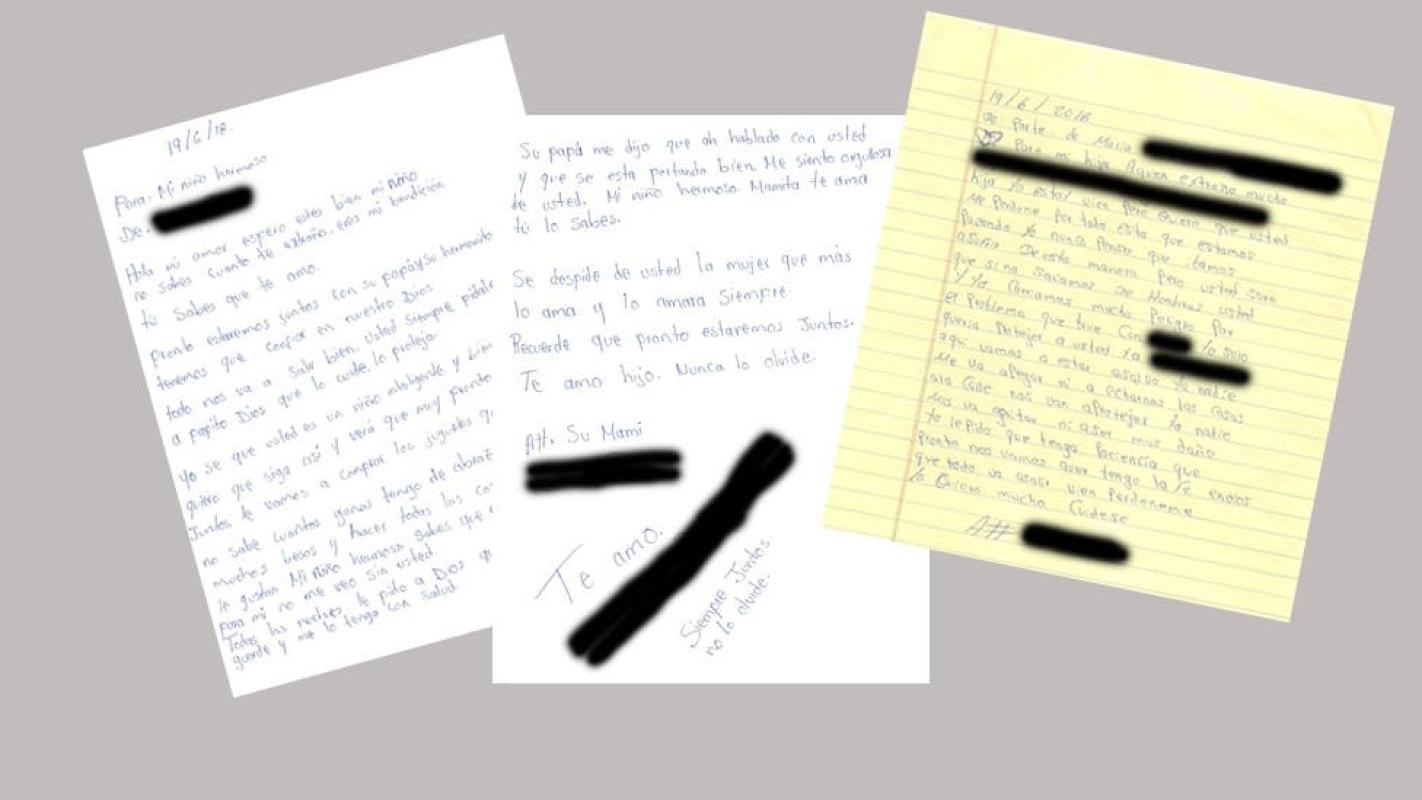 19/6/18.
Para: Mi niño hermoso
De:
Hola mi amor espero estes bien mi niño
no sabes cuanto te extraño. eres mi bendición
tú Sabes que te amo.
pronto estaremos juntos con su papá y su hermanito
tenemos que confiar en nuestro Dios
todo nos va a Salir bien. usted Siempre pidale
a papito Dios que lo cuide, lo proteja.
Yo se que usted es un niño inteligente y bien
quiero que siga así y verá que muy pronto
Juntos le vamos a comprar los juguetes
no sabe cuantas ganas tengo de
muchos besos y hacer todas las
le gustan Mi niño hermoso. Sabes que
Para mi no me veo Sin usted
Todas las noches, le pido a Dios
guarde y me lo tenga con salud.
Su papá me dijo que ah hablado con usted
y que se esta portando bien. Me siento orgullosa
de usted. Mi niño hermoso. Mamita te ama
tú lo Sabes.
Se despide de usted la mujer que más
lo ama y lo amara Siempre.
Recuerde que pronto estaremos Juntos.
Te amo hijo. Nunca lo olvide.
Att. Su Mami
Te amo.
Siempre Juntos
no lo olvide.
19/6/2018
de Parte de Maria
Para mi hija Aquen extraño mucho
hija Yo estoy vien Pero quiero que usted
Me Perdone Por todo esto que estamos
Pasando Yo nunca Pense que ibamos
asufrir De esta manera Pero usted Save
que si no Saliamos De Honduras usted
Y Yo Corriamos mucho Peligro Por
el Problema que tuve Con Yo solo
queria Protejer a usted Ya
aqui vamos a estar asalvo Ya nadie
Me va apegar ni a echarnos las Cosas
ala Calle nos van aProtejer Ya nadie
nos va agritar ni aser mas daño
Yo le Pido que tenga Paciencia que
Pronto nos vamos aver tengo la fe endios
que todo va asalir vien Perdoneme
la Quiero mucho Cuidese
Att